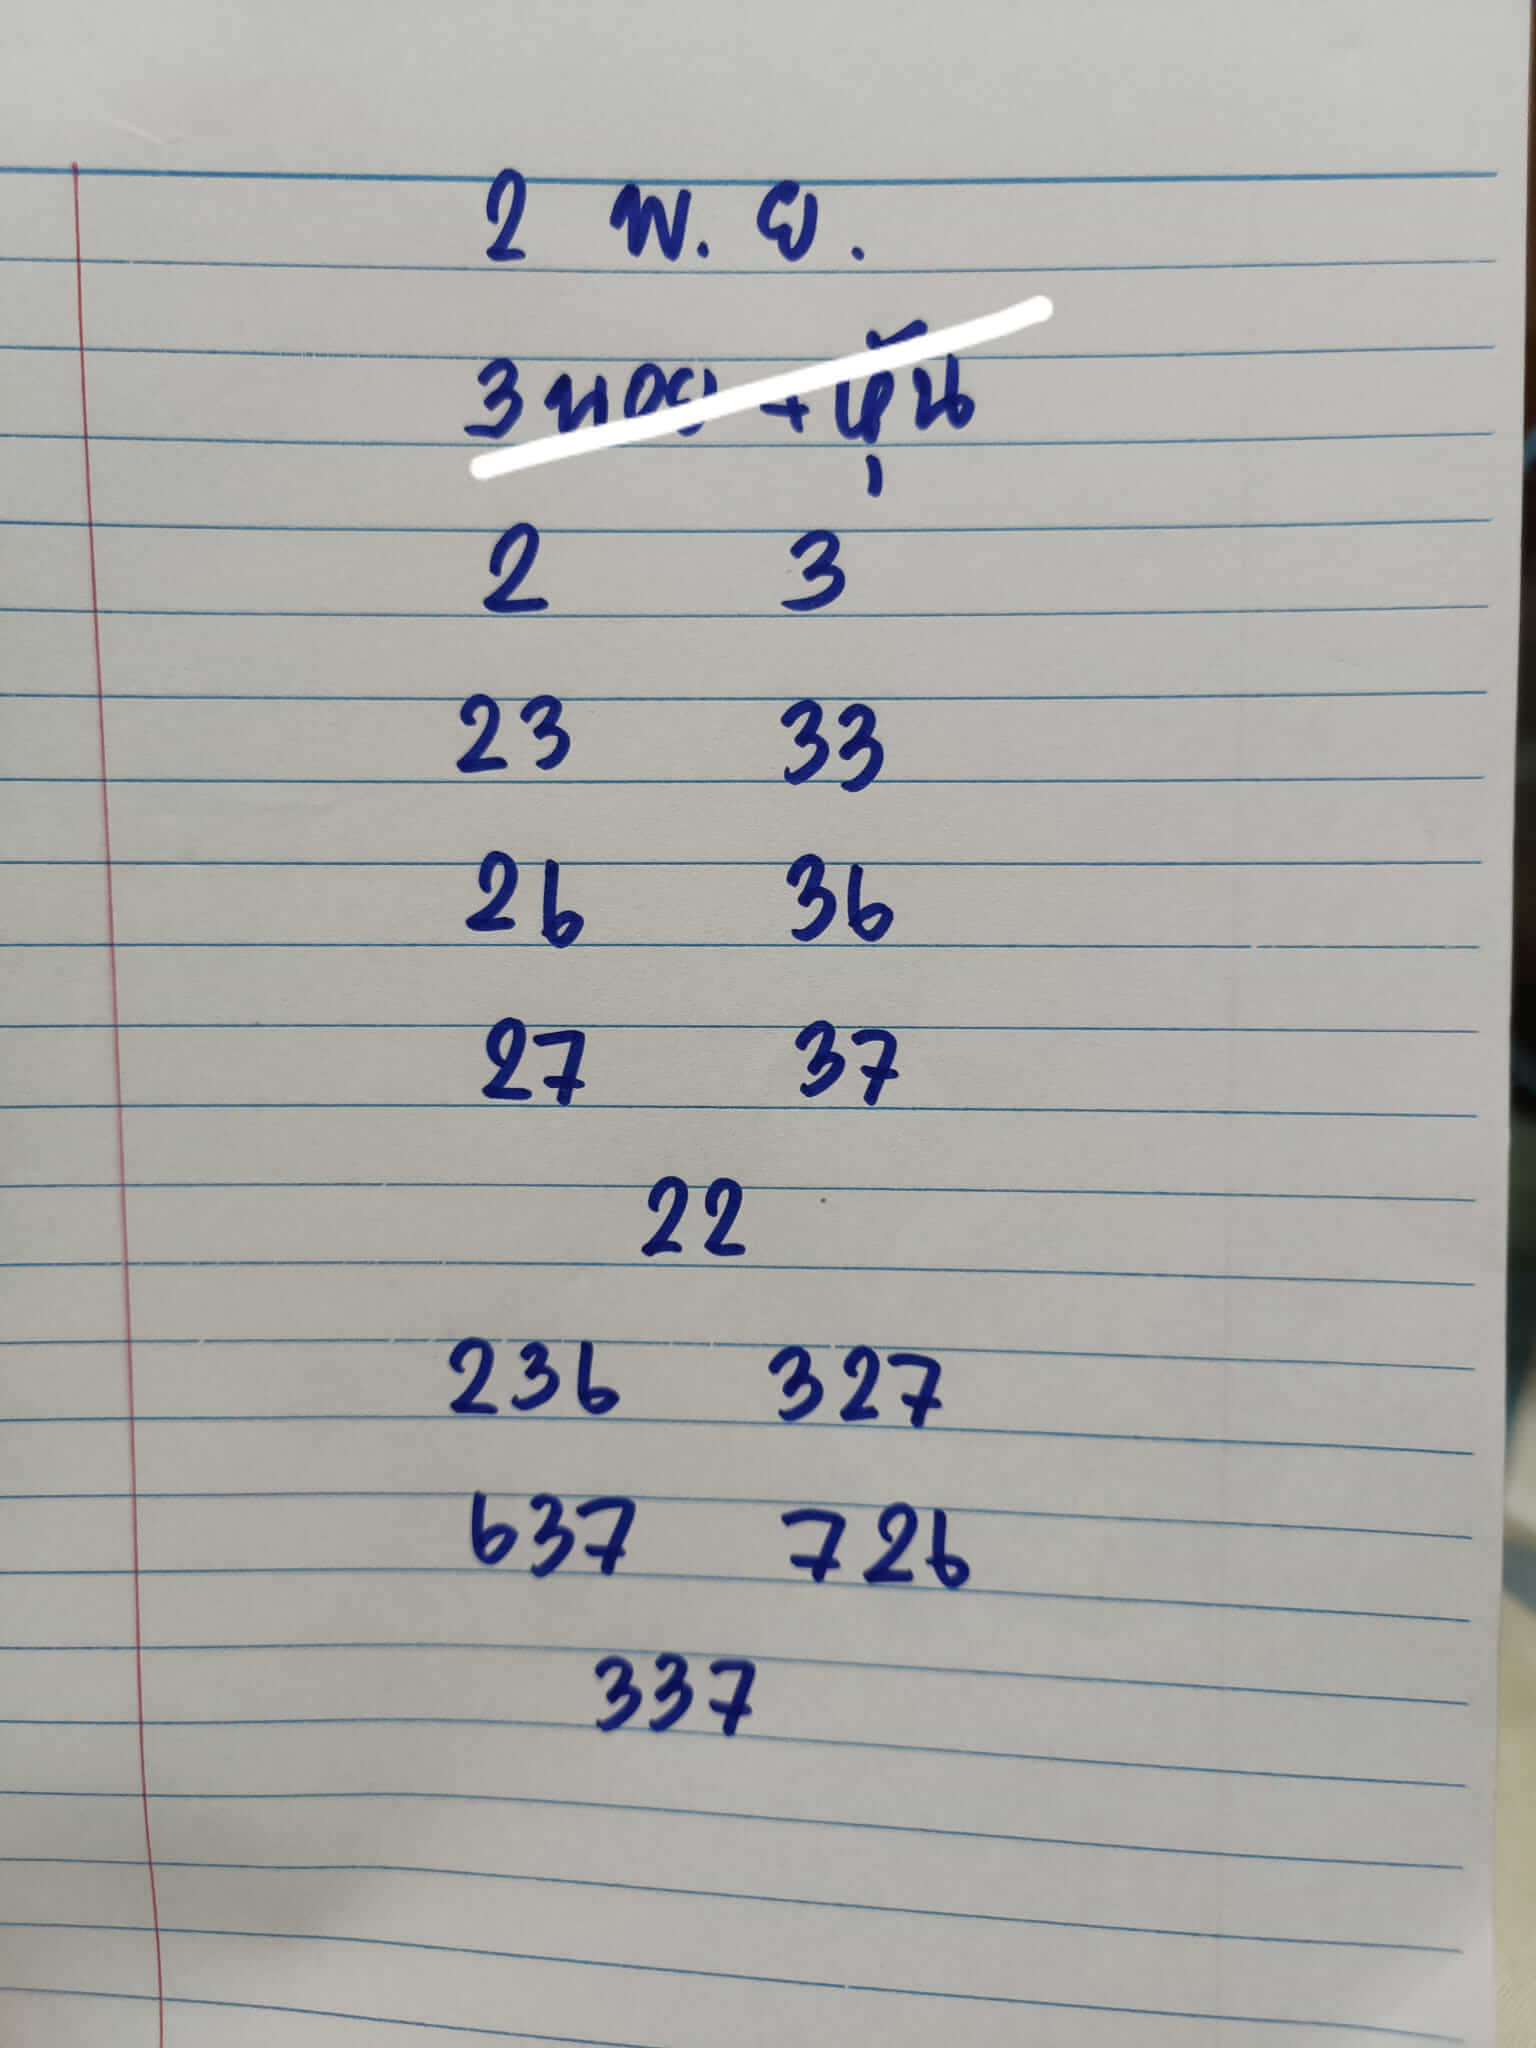 2 พ. ย.
3 + หุ้น
2 3
23 33
26 36
27 37
22
236 327
637 726
337